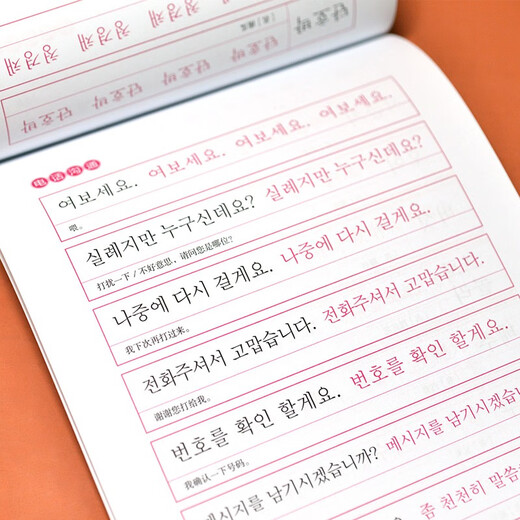 청경채 청경채 청경채 청경채
단호박 단호박 단호박 단호박 단호박
电话沟通
여보세요. 여보세요. 여보세요. 여보세요.
喂。
실례지만 누구신데요? 실례지만 누구신데요?
打扰一下/不好意思，请问您是哪位?
나중에 다시 걸게요. 나중에 다시 걸게요.
我下次再打过来。
전화주셔서 고맙습니다. 전화주셔서 고맙습니다.
谢谢您打给我。
번호를 확인 할게요. 번호를 확인 할게요.
我确认一下号码。
메시지를 남기시겠습니까? 메시지를 남기시겠습
좀 천천히 말씀